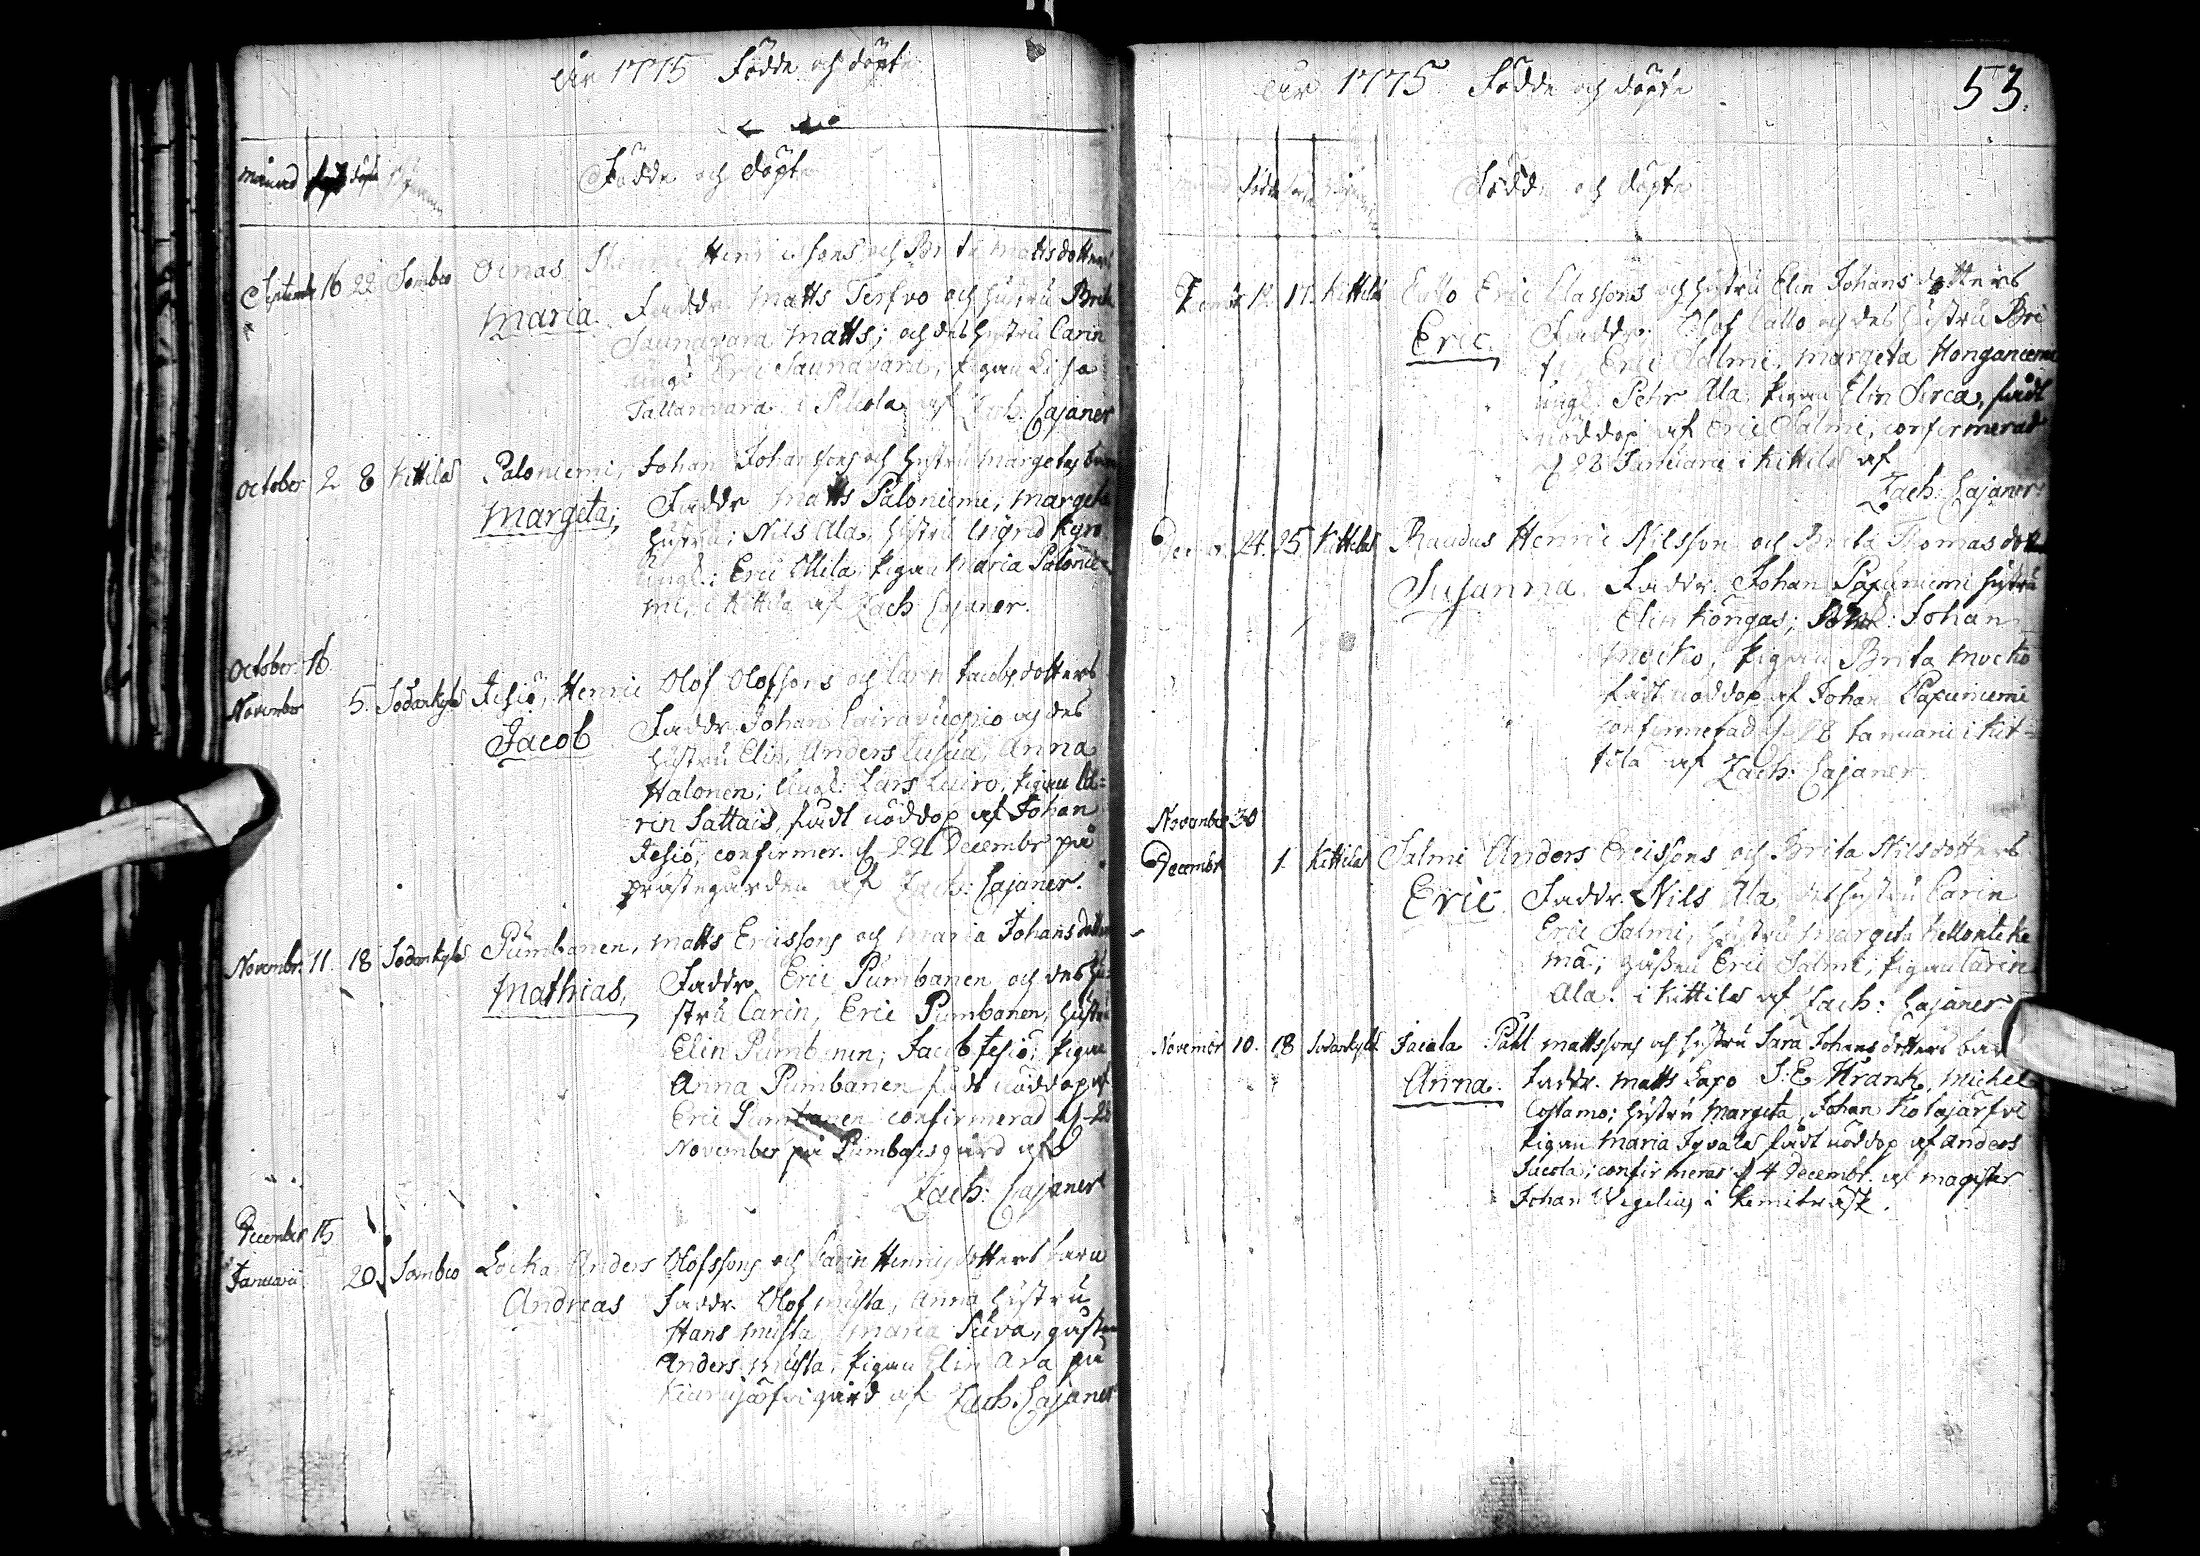 År 1775 Födde och döpte
månad födt döpt
Födde och döpte
September 16 22 Sombio Oinas Henric Henricssons och Brita Mattsdotters
Maria. Faddr. Matts Terfvo och hustru Brita
Saunavara Matts; och des hustru Carin
ungk. Eric Saunavara, pigan Lisa
Tallavaara i Pelcola af Zach: Cajaner
October 2 8 Kittilä Paloniemi, Johan Johanssons och hustru Margetas barn
Margeta; Faddr Matts Paloniemi, Margeta
hustru; Nils Ala, hustru Sigrid Kyrö
ungk: Eric Ollila, pigan Maria Palonie-
mi, i Kittilä af Zach Cajaner.
October 16
November 5. Sodankylä Jesiö, Henric Olof Olofsons och Carin Jacobsdotters
Jacob Faddr. Johan Cairavuopio och des
hustru Elin, Anders Cusua, Anna
Halonen; Ungk: Lars Luiro, pigan Ca-
rin Sattais, fådt nöddop af Johan
Jesiö, confirmer. d 22 Decembr på
prästegården af Zach: Cajaner.
Novembr. 11 18 Sodankylä Pumbanen, Matts Ericssons och Maria Johansdotters
Mathias, Faddr. Eric Pumbanen och des hu-
stru Carin, Eric Pumbanen, hustru
Elin Pumbanen; Jacob Jesiö, pigan
Anna Pumbanen fådt nöddop af
Eric Pumbanen confirmerad d 25
November på Pumbasgård af
Zach: Cajaner
December 15
Januarii 20 Sombio Locka Anders Olofssons och Carin Henricsdotters barn
Andreas Faddr. Olof Musta, Anna hustru
Hans Musta, Maria Siiva, gossen
Anders Musta, pigan Elin Ara på
Kiurujärfvi gård af Zach: Cajaner
År 1775 Födde och döpte 53.
Födde och döpte
17. Kittilä Eric Classons och hustru Elin Johansdotters
Eric. Faddr. Olof Callo och des hustru Bri
ta, Eric Salmi, Margeta Honganiemi
ungk: Pehr Ala, pigan Elin Sirca, fådt
nöddop af Eric Salmi, confirmerad
d 28 Januarii i Kittilä af
Zach: Cajaner.
24. 25 Kittilä Raudus Henric Nilsson och Brita Thomasdotter
Susanna. Faddr. Johan Papuniemi hustru
Elin Köngas; Johan
Mocko, pigan Brita Mocko
fådt nöddop af Johan Papuniemi
confirmerad d 28 Januarii i Kit-
tilä af Zach: Cajaner
November 30
Decembr 1. Kittilä Salmi Anders Ericssons och Brita Nilsdotters
Eric Faddr. Nils Ala, des hustru Carin
Eric Salmi, hustru Margeta Kellonteke
mä; gossen Eric Salmi, pigan Carin
Ala. i Kittilä af Zach: Cajaner
Novembr 10. 18 Sodankylä Jacola Påhl Mattssons och hustru Sara Johansdotters barn
Anna. Faddr. Matts Lapo S: E Krank, Michel
Costamo; hustru Margeta, Johan Kotajärfvi
pigan Maria Jyvälä fådt nöddop af Anders
Jacola; confirmeras d 4 Decembr. af magister
Johan Wegelius i Kemiträsk.